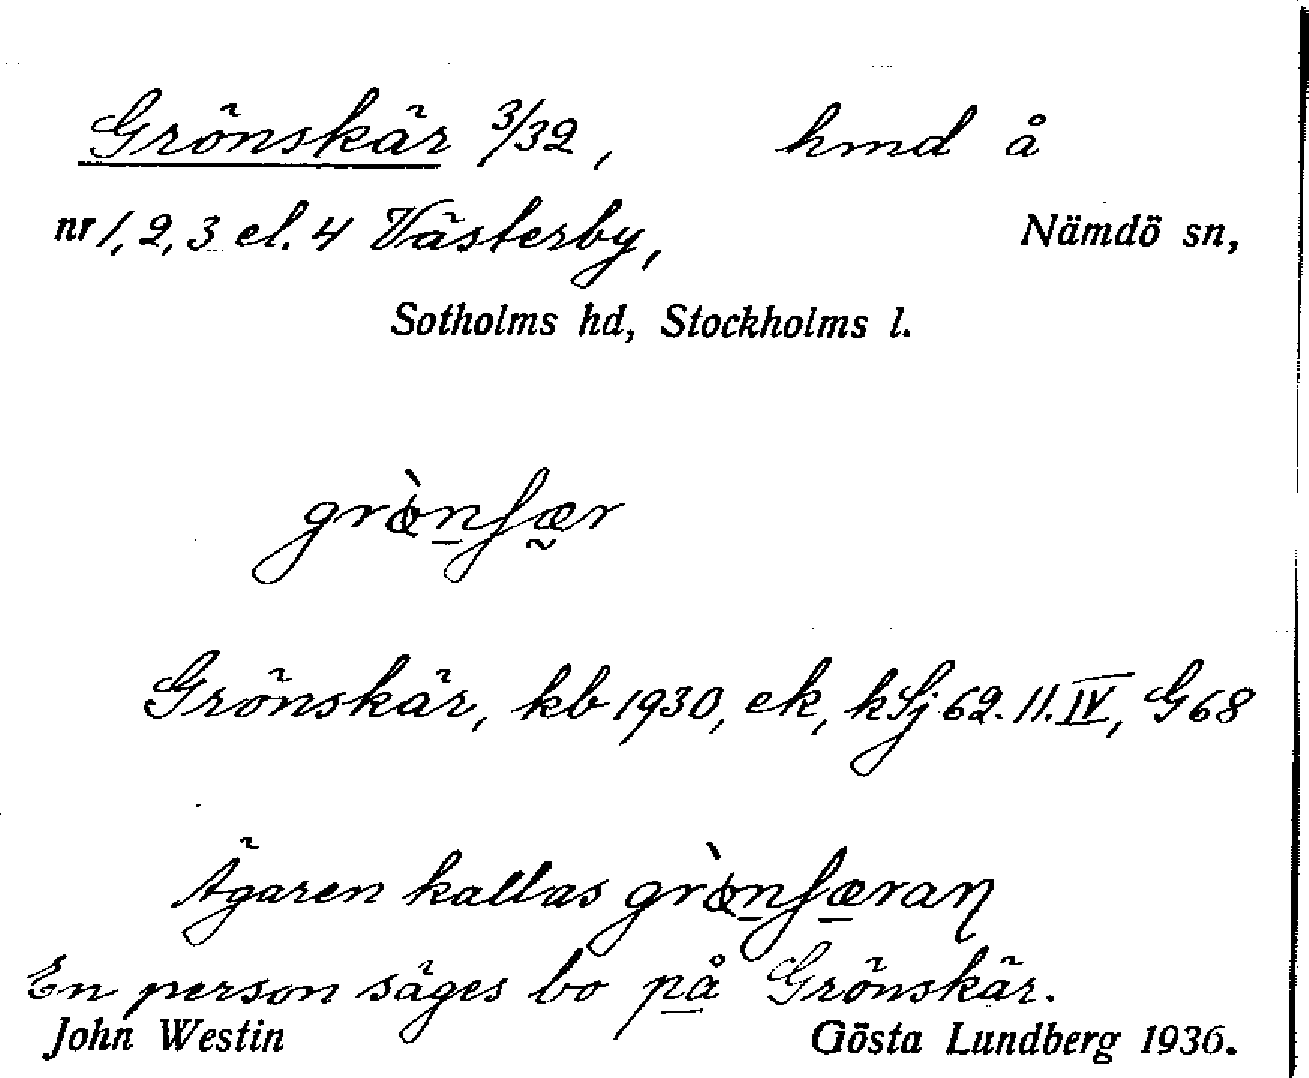 Grönskär 3/32, hmd å
nr 1, 2, 3 el. 4 Västerby, Nämdö sn,
Sotholms hd, Stockholms l.
Grönskär, kb 1930, ek, kSj 62. 11. IV, G68
Ägaren kallas
En person säges bo på Grönskär.
John Westin Gösta Lundberg 1936.